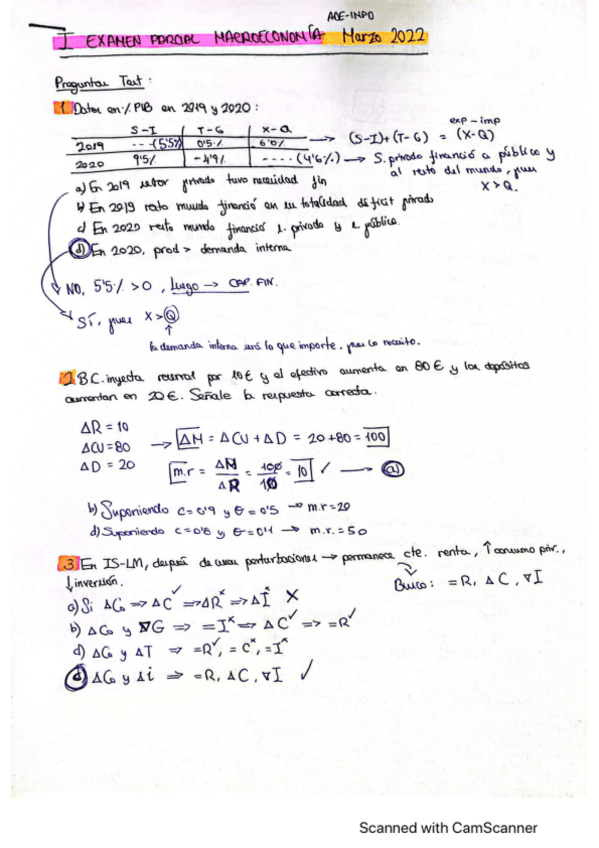 ADE-INFO
I EXAMEN PARCIAL MACROECONOMÍA Marzo 2022
Preguntas Test:
1. Datos en % PIB en 2019 y 2020:
S-I | T-G | X-Q
2019 --- (5'5%) 0'5% 6'0%
2020 9'5% -4'9% ---- (4'6%)
exp - imp
→ (S-I)+(T-G) = (X-Q)
→ S. privado financió a público y
al resto del mundo, pues
X>Q.
a) En 2019 sector privado tuvo necesidad fin
b) En 2019 resto mundo financió en su totalidad déficit privado
c) En 2020 resto mundo financió s. privado y s. público.
d) En 2020, prod > demanda interna
NO, 5'5% > 0, luego → CAP. FIN.
SÍ, pues X > Q
la demanda interna será lo que importe, pues lo necesito.
2. B.C. inyecta reservas por 10€ y el efectivo aumenta en 80€ y los depósitos
aumentan en 20€. Señale la respuesta correcta.
ΔR = 10
ΔCU = 80
ΔD = 20
→ ΔM = ΔCU + ΔD = 20+80 = 100
m.r = ΔM/ΔR = 100/10 = 10 ✓ → a)
b) Suponiendo c = 0'9 y θ = 0'5 → m.r = 20
d) Suponiendo c = 0'8 y θ = 0'4 → m.r. = 50
3. En IS-LM, después de unas perturbaciones → permanece cte. renta, ↑ consumo priv.,
↓ inversión.
Busco: = R, ΔC, ∇I
a) Si ΔC₀ ⇒ ΔC ✓ ⇒ ΔR ˣ ⇒ ΔI ˣ X
b) ΔC₀ y ∇G ⇒ = I ˣ ⇒ ΔC ✓ ⇒ = R ✓
d) ΔC₀ y ΔT ⇒ = R ✓, = C ˣ, = I ˣ
d) ΔC₀ y Δi ⇒ = R, ΔC, ∇I ✓
Scanned with CamScanner